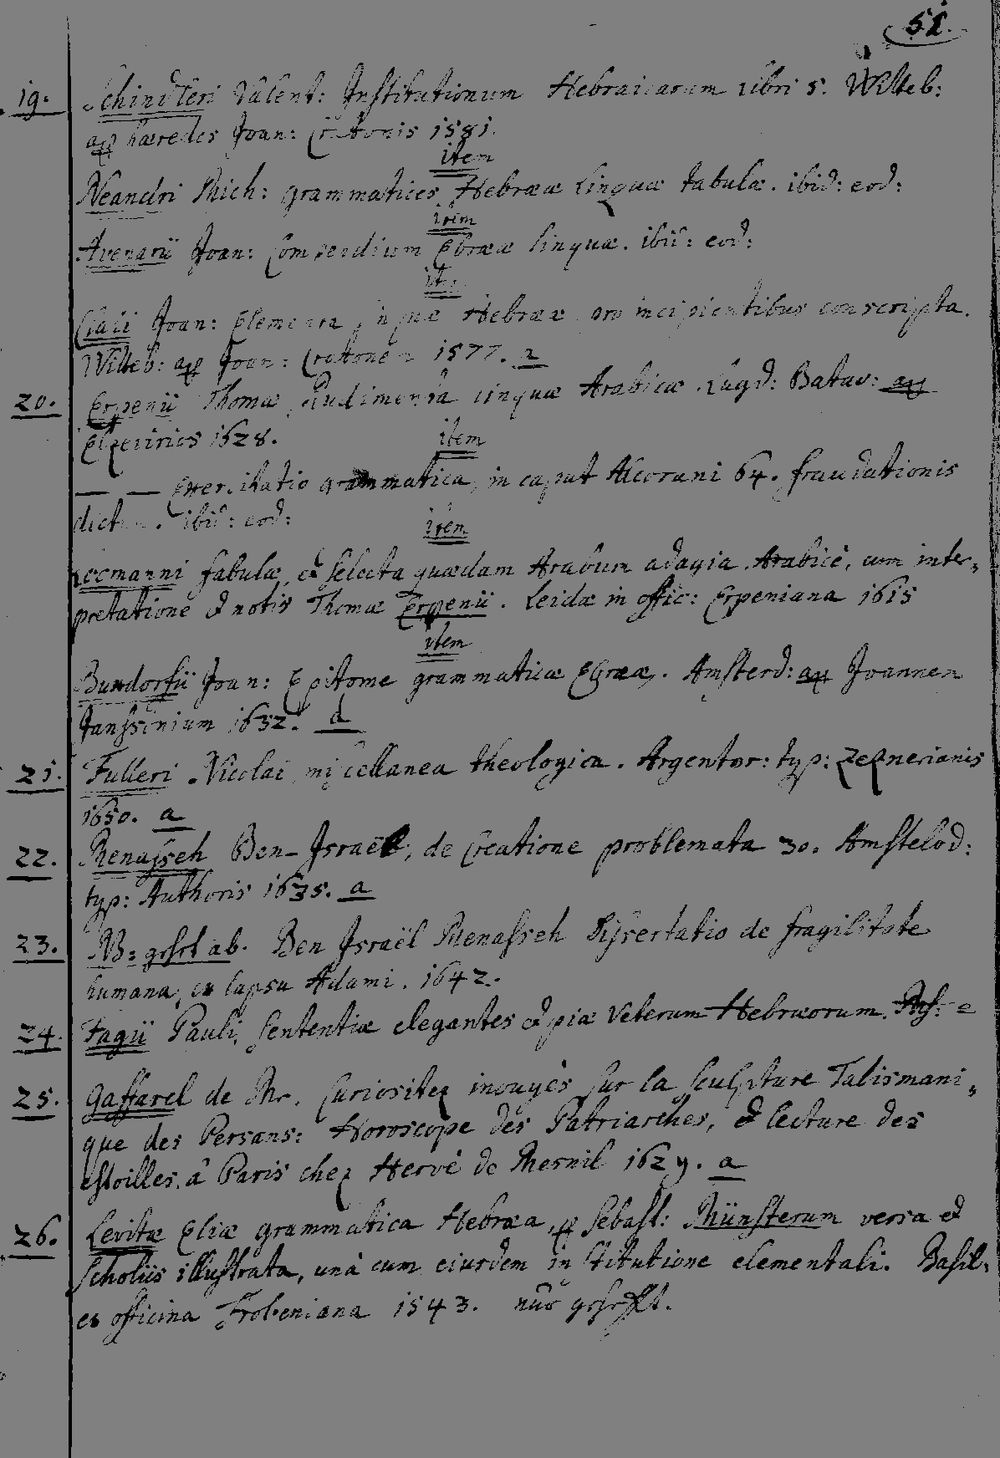 51.
19. Schindleri Valent: Institutionum Hebraicarum libri 5. Witteb:
apq hæredes Joan: Cratonis 1581.
item
Neandri Mich: grammatices Hebrææ linguæ tabulæ. ibid: eod:
item
Avenarii Joan: Compendium Ebrææ linguæ. ibid: eod:
item
Claii Joan: Elementa linguæ Hebrææ pro incipientibus conscripta.
Witteb: ap Joan: Cratonem 1577. a
20. Erpenii Thomæ Rudimenta linguæ Arabicæ. Lugd: Batav: ap
Elzevirios 1628.
item
— — Exercitatio grammatica, in caput Alcorani 64. fraudationis
dictum. ibid: eod:
item
Locmanni fabulæ, et selecta quædam Arabum adagia Arabicè, cum inter-
pretatione et notis Thomæ Erpenii. Leidæ in offic: Erpeniana 1615
item
Buxdorfii Joan: Epitome grammaticæ Ebrææ. Amsterd: ap Joannem
Janssenium 1632. a
21. Fulleri Nicolai miscellanea theologica. Argentor: typ: Zeznerianis
1650. a
22. Menasseh Ben-Israël, de Creatione problemata 30. Amstelod:
typ: Authoris 1635. a
23. NB: gehet ab. Ben Israël Menasseh Dissertatio de fragilitate
humana, ex lapsu Adami. 1642.
24. Fagii Pauli, Sententiæ elegantes et piæ Veterum Hebræorum.
25. Gaffarel de Mr. Curiositez inouyés sur la sculpture Talismani-
que des Persans: Horoscope des Patriarches, et lecture des
estoilles. à Paris chez Hervé de Mesnil 1629. a
26. Levitæ Eliæ grammatica Hebræa, p Sebast: Münsterum versa et
scholiis illustrata, unà cum eiusdem institutione elementali. Basil:
ex officina Frobeniana 1543.